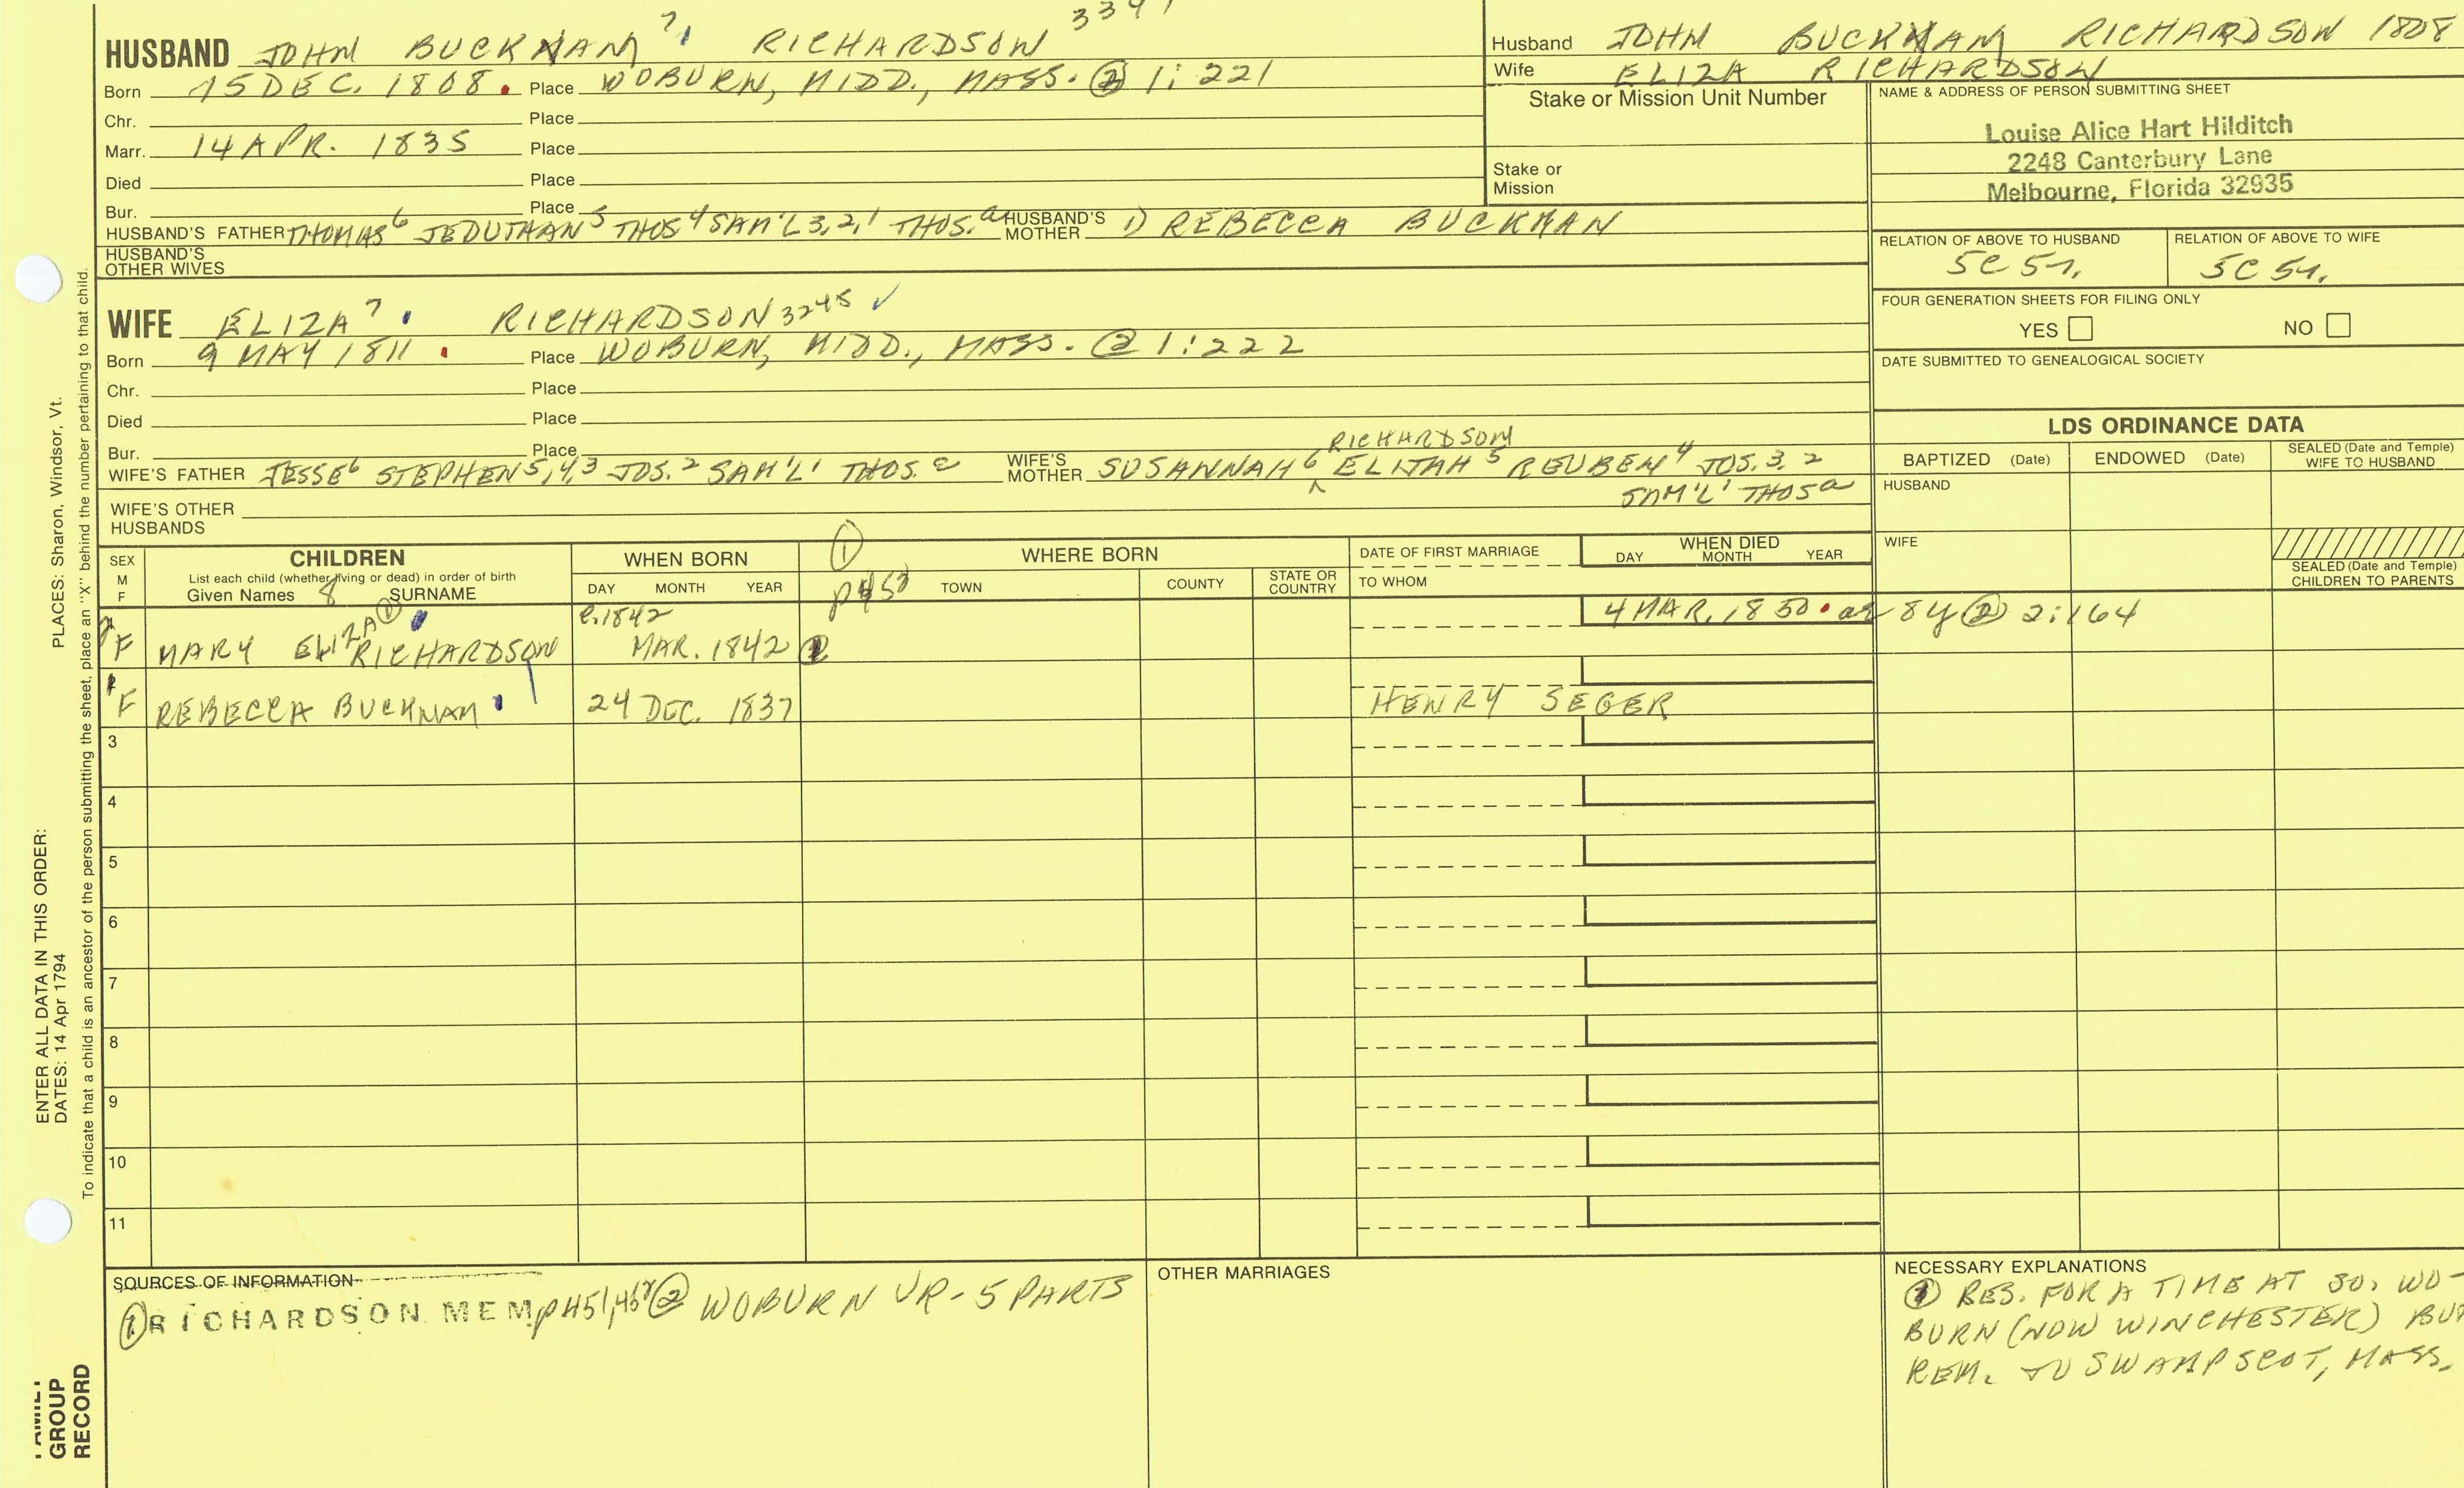 HUSBAND JOHN BUCKMAN 7 RICHARDSON
Born 15 DEC. 1808. Place WOBURN, MIDD., MASS. ② 1:221
Chr. Place
Marr. 14 APR. 1835 Place
Died Place
Bur. Place
HUSBAND'S FATHER THOMAS 6 JEDUTHAN 5 THOS 4 SAM'L 3,2,1 THOS. a HUSBAND'S MOTHER 1) REBECCA BUCKMAN
HUSBAND'S OTHER WIVES
Husband JOHN BUCKMAN RICHARDSON 1808
Wife ELIZA RICHARDSON
Stake or Mission Unit Number
Stake or
Mission
NAME & ADDRESS OF PERSON SUBMITTING SHEET
Louise Alice Hart Hilditch
2248 Canterbury Lane
Melbourne, Florida 32935
RELATION OF ABOVE TO HUSBAND RELATION OF ABOVE TO WIFE
5C 5r. 5C 5r.
FOUR GENERATION SHEETS FOR FILING ONLY
YES NO
DATE SUBMITTED TO GENEALOGICAL SOCIETY
WIFE ELIZA 7 RICHARDSON 3245 ✓
Born 9 MAY 1811 . Place WOBURN, MIDD., MASS. ② 1:222
Chr. Place
Died Place
Bur. Place
RICHARDSON
WIFE'S FATHER JESSE 6 STEPHEN 5,4,3 JOS. 2 SAM'L 1 THOS. a WIFE'S MOTHER SUSANNAH 6 ^ ELIJAH 5 REUBEN 4 JOS. 3, 2
SAM'L 1 THOS a
WIFE'S OTHER
HUSBANDS
LDS ORDINANCE DATA
BAPTIZED (Date) ENDOWED (Date) SEALED (Date and Temple) WIFE TO HUSBAND
HUSBAND
WIFE
SEALED (Date and Temple) CHILDREN TO PARENTS
SEX M F
CHILDREN
List each child (whether living or dead) in order of birth
Given Names 8 SURNAME
WHEN BORN
DAY MONTH YEAR
① p 453
WHERE BORN
TOWN COUNTY STATE OR COUNTRY
DATE OF FIRST MARRIAGE
TO WHOM
WHEN DIED
DAY MONTH YEAR
c.1842 4 MAR. 1850 . ae 8y ② 2:164
F MARY ELIZA RICHARDSON MAR. 1842
F REBECCA BUCKMAN 24 DEC. 1837 HENRY SEGER
3
4
5
6
7
8
9
10
11
SOURCES OF INFORMATION
① RICHARDSON MEM ② WOBURN VR - 5 PARTS
OTHER MARRIAGES
NECESSARY EXPLANATIONS
① RES. FOR A TIME AT SO. WO-
BURN (NOW WINCHESTER) BUT
REM. TO SWAMPSCOT, MASS.
ENTER ALL DATA IN THIS ORDER:
DATES: 14 Apr 1794 PLACES: Sharon, Windsor, Vt.
To indicate that a child is an ancestor of the person submitting the sheet, place an "X" behind the number pertaining to that child.
FAMILY
GROUP
RECORD